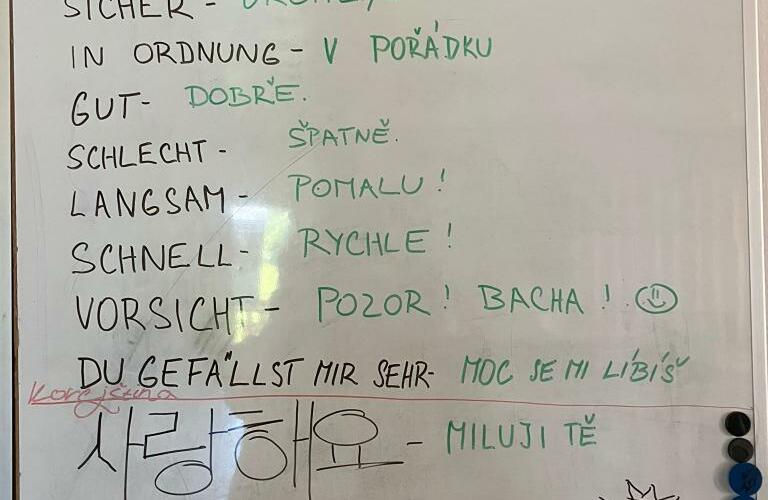 SICHER -
IN ORDNUNG - V POŘÁDKU
GUT- DOBŘE.
SCHLECHT - ŠPATNĚ.
LANGSAM - POMALU !
SCHNELL- RYCHLE !
VORSICHT - POZOR ! BACHA !
DU GEFÄLLST MIR SEHR- MOC SE MI LÍBÍŠ
Korejština
사랑해요 - MILUJI TĚ